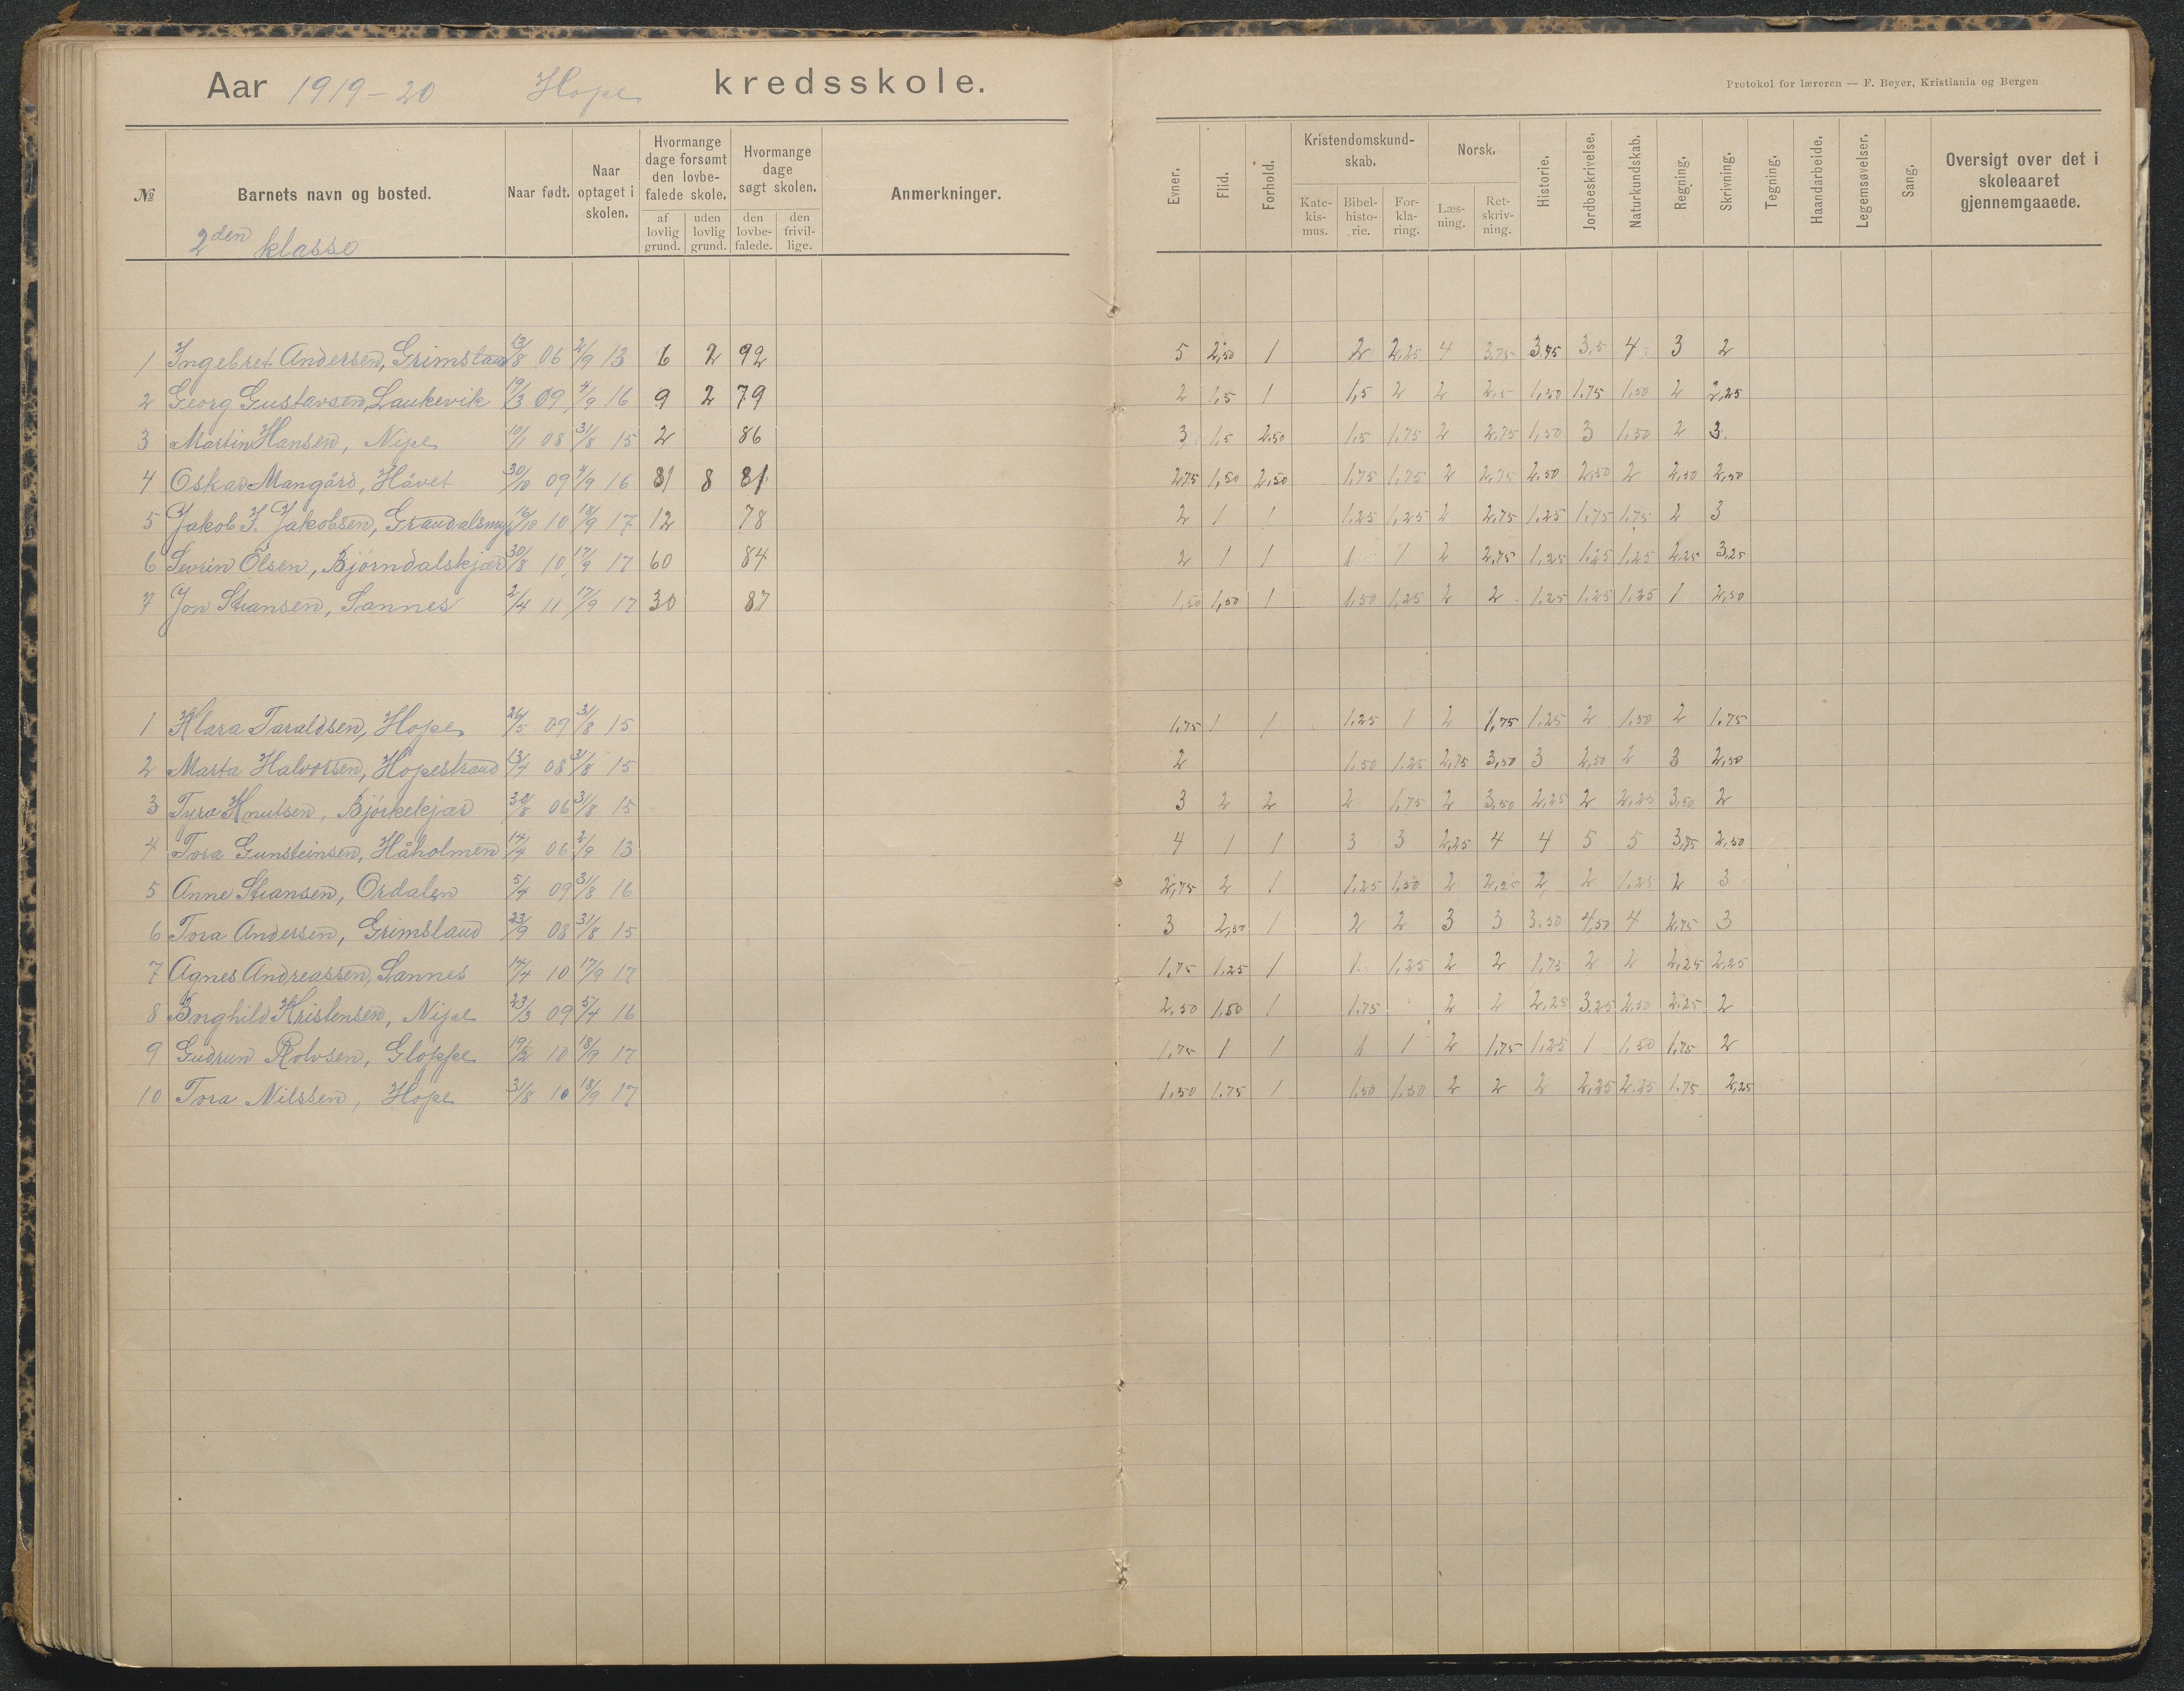 Aar 1919-20 Hope kredsskole.
Protokol for læreren — F. Beyer, Kristiania og Bergen
№ Barnets navn og bosted. Naar født. Naar optaget i skolen. Hvormange dage forsømt den lovbefalede skole. af lovlig grund. uden lovlig grund. Hvormange dage søgt skolen. den lovbefalede. den frivillige. Anmerkninger. Evner. Flid. Forhold. Kristendomskundskab. Katekismus. Bibelhistorie. Forklaring. Norsk. Læsning. Retskrivning. Historie. Jordbeskrivelse. Naturkundskab. Regning. Skrivning. Tegning. Haandarbeide. Legemsøvelser. Sang. Oversigt over det i skoleaaret gjennemgaaede.
2den klasse
1 Ingebret Andersen, Grimsland 13/8 06 2/9 13 6 2 92 5 2,50 1 2 2,25 4 3,75 3,75 3,5 4 3 2
2 Georg Gustavsen, Laukevik 19/3 09 4/9 16 9 2 79 2 1,5 1 1,5 2 2 2,5 1,50 1,75 1,50 2 2,25
3 Martin Hansen, Nipe 10/1 08 31/8 15 2 86 3 1,5 2,50 1,5 1,75 2 2,75 1,50 3 1,50 2 3
4 Oskar Mangård, Håvet 30/10 09 4/9 16 31 8 81 2,75 1,50 2,50 1,75 1,75 2 2,75 2,50 2,50 2 2,50 2,50
5 Jakob J. Jakobsen, Graudalsmyr 16/10 10 18/9 17 12 78 2 1 1 1,25 1,25 2 2,75 1,25 1,75 1,75 2 3
6 Sevrin Olsen, Bjørndalskjær 30/8 10 17/9 17 60 84 2 1 1 1 1 2 2,75 1,25 1,25 1,25 2,25 3,25
7 Jon Stiansen, Sannes 2/4 11 17/9 17 30 87 1,50 1,50 1 1,50 1,25 2 2 1,25 1,25 1,25 1 2,50
1 Klara Taraldsen, Hope 26/5 09 31/8 15 1,75 1 1 1,25 1 2 1,75 1,25 2 1,50 2 1,75
2 Marta Halvorsen, Hopestrand 13/4 08 31/8 15 2 1,50 1,25 2,75 3,50 3 2,50 2 3 2,50
3 Tyra Knutsen, Bjørkekjær 30/8 06 31/8 15 3 2 2 2 1,75 2 3,50 2,25 2 2,25 3,50 2
4 Tora Gunsteinsen, Håholmen 14/4 06 2/9 13 4 1 1 3 3 2,25 4 4 5 5 3,75 2,50
5 Anne Stiansen, Ordalen 5/4 09 31/8 16 2,75 2 1 1,25 1,50 2 2,25 2 2 1,25 2 3
6 Tora Andersen, Grimsland 23/9 08 31/8 15 3 2,50 1 2 2 3 3 3,50 4,50 4 2,75 3
7 Agnes Andreassen, Sannes 14/4 10 17/9 17 1,75 1,25 1 1 1,25 2 2 1,75 2 2 2,25 2,25
8 Borghild Kristensen, Nipe 23/3 09 5/4 16 2,50 1,50 1 1,75 2 2 2,25 3,25 2,50 2,25 2
9 Gudrun Rolvsen, Gloppe 19/2 10 18/9 17 1,75 1 1 1 1 2 1,75 1,25 1 1,50 1,75 2
10 Tora Nilssen, Hope 31/8 10 18/9 17 1,50 1,75 1 1,50 1,50 2 2 2 2,25 2,25 1,75 2,25